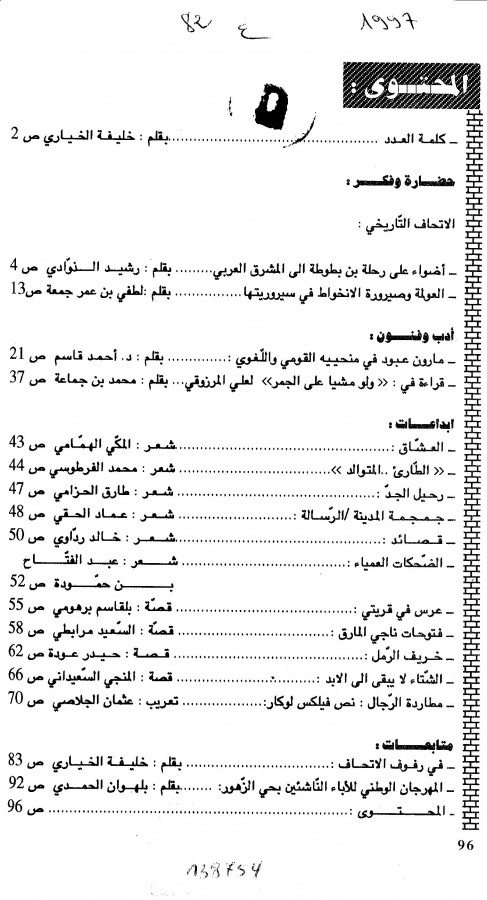 82 ع 1997
المحتوى :
ـ كلمة العدد ......................................بقلم : خليفة الخياري ص 2
حضارة وفكر :
الاتحاف التّاريخي :
ـ أضواء على رحلة بن بطوطة الى المشرق العربي.......... بقلم : رشيد الذوّادي ص 4
ـ العولمة وصيرورة الانخواط في سيروريتها.................. بقلم :لطفي بن عمر جمعة ص13
أدب وفنون :
ـ مارون عبود في منحييه القومي واللّغوي : ......... بقلم : د. أحمد قاسم ص 21
ـ قراءة في : « ولو مشيا على الجمر» لعلي المرزوقي... بقلم : محمد بن جماعة ص 37
ابداعات :
ـ العشّاق : ..................................شعر : المكّي الهمّامي ص 43
ـ « الطّارئ ..المتوالد »........................شعر : محمد الفرطوسي ص 44
ـ رحيل الجدّ : ..................................شعر : طارق الحزامي ص 47
ـ جمجمة المدينة /الرّسالة : ....................شعر : عماد الحقي ص 48
ـ قصائد : ..................................شعر : خالد ردّاوي ص 50
ـ الضّحكات العمياء : ........................شعر : عبد الفتّاح
بن حمّودة ص 52
ـ عرس في قريتي : ........................قصّة : بلقاسم برهومي ص 55
ـ فتوحات ناجي المارق : ....................قصّة : السّعيد مرابطي ص 58
ـ خريف الرّمل : ..............................قصّة : حيدر عودة ص 62
ـ الشّتاء لا يبقى الى الابد : ....................قصة : المنجي السّعيداني ص 66
ـ مطاردة الرّجال : نص فيلكس لوكار: ............... تعريب : عثمان الجلاصي ص 70
متابعات :
ـ في رفوف الاتحاف : ........................بقلم : خليفة الخياري ص 83
ـ المهرجان الوطني للأباء النّاشئين بحي الزّهور: ........بقلم : بلهوان الحمدي ص 92
ـ المحتوى : ..................................ص 96
96
138754